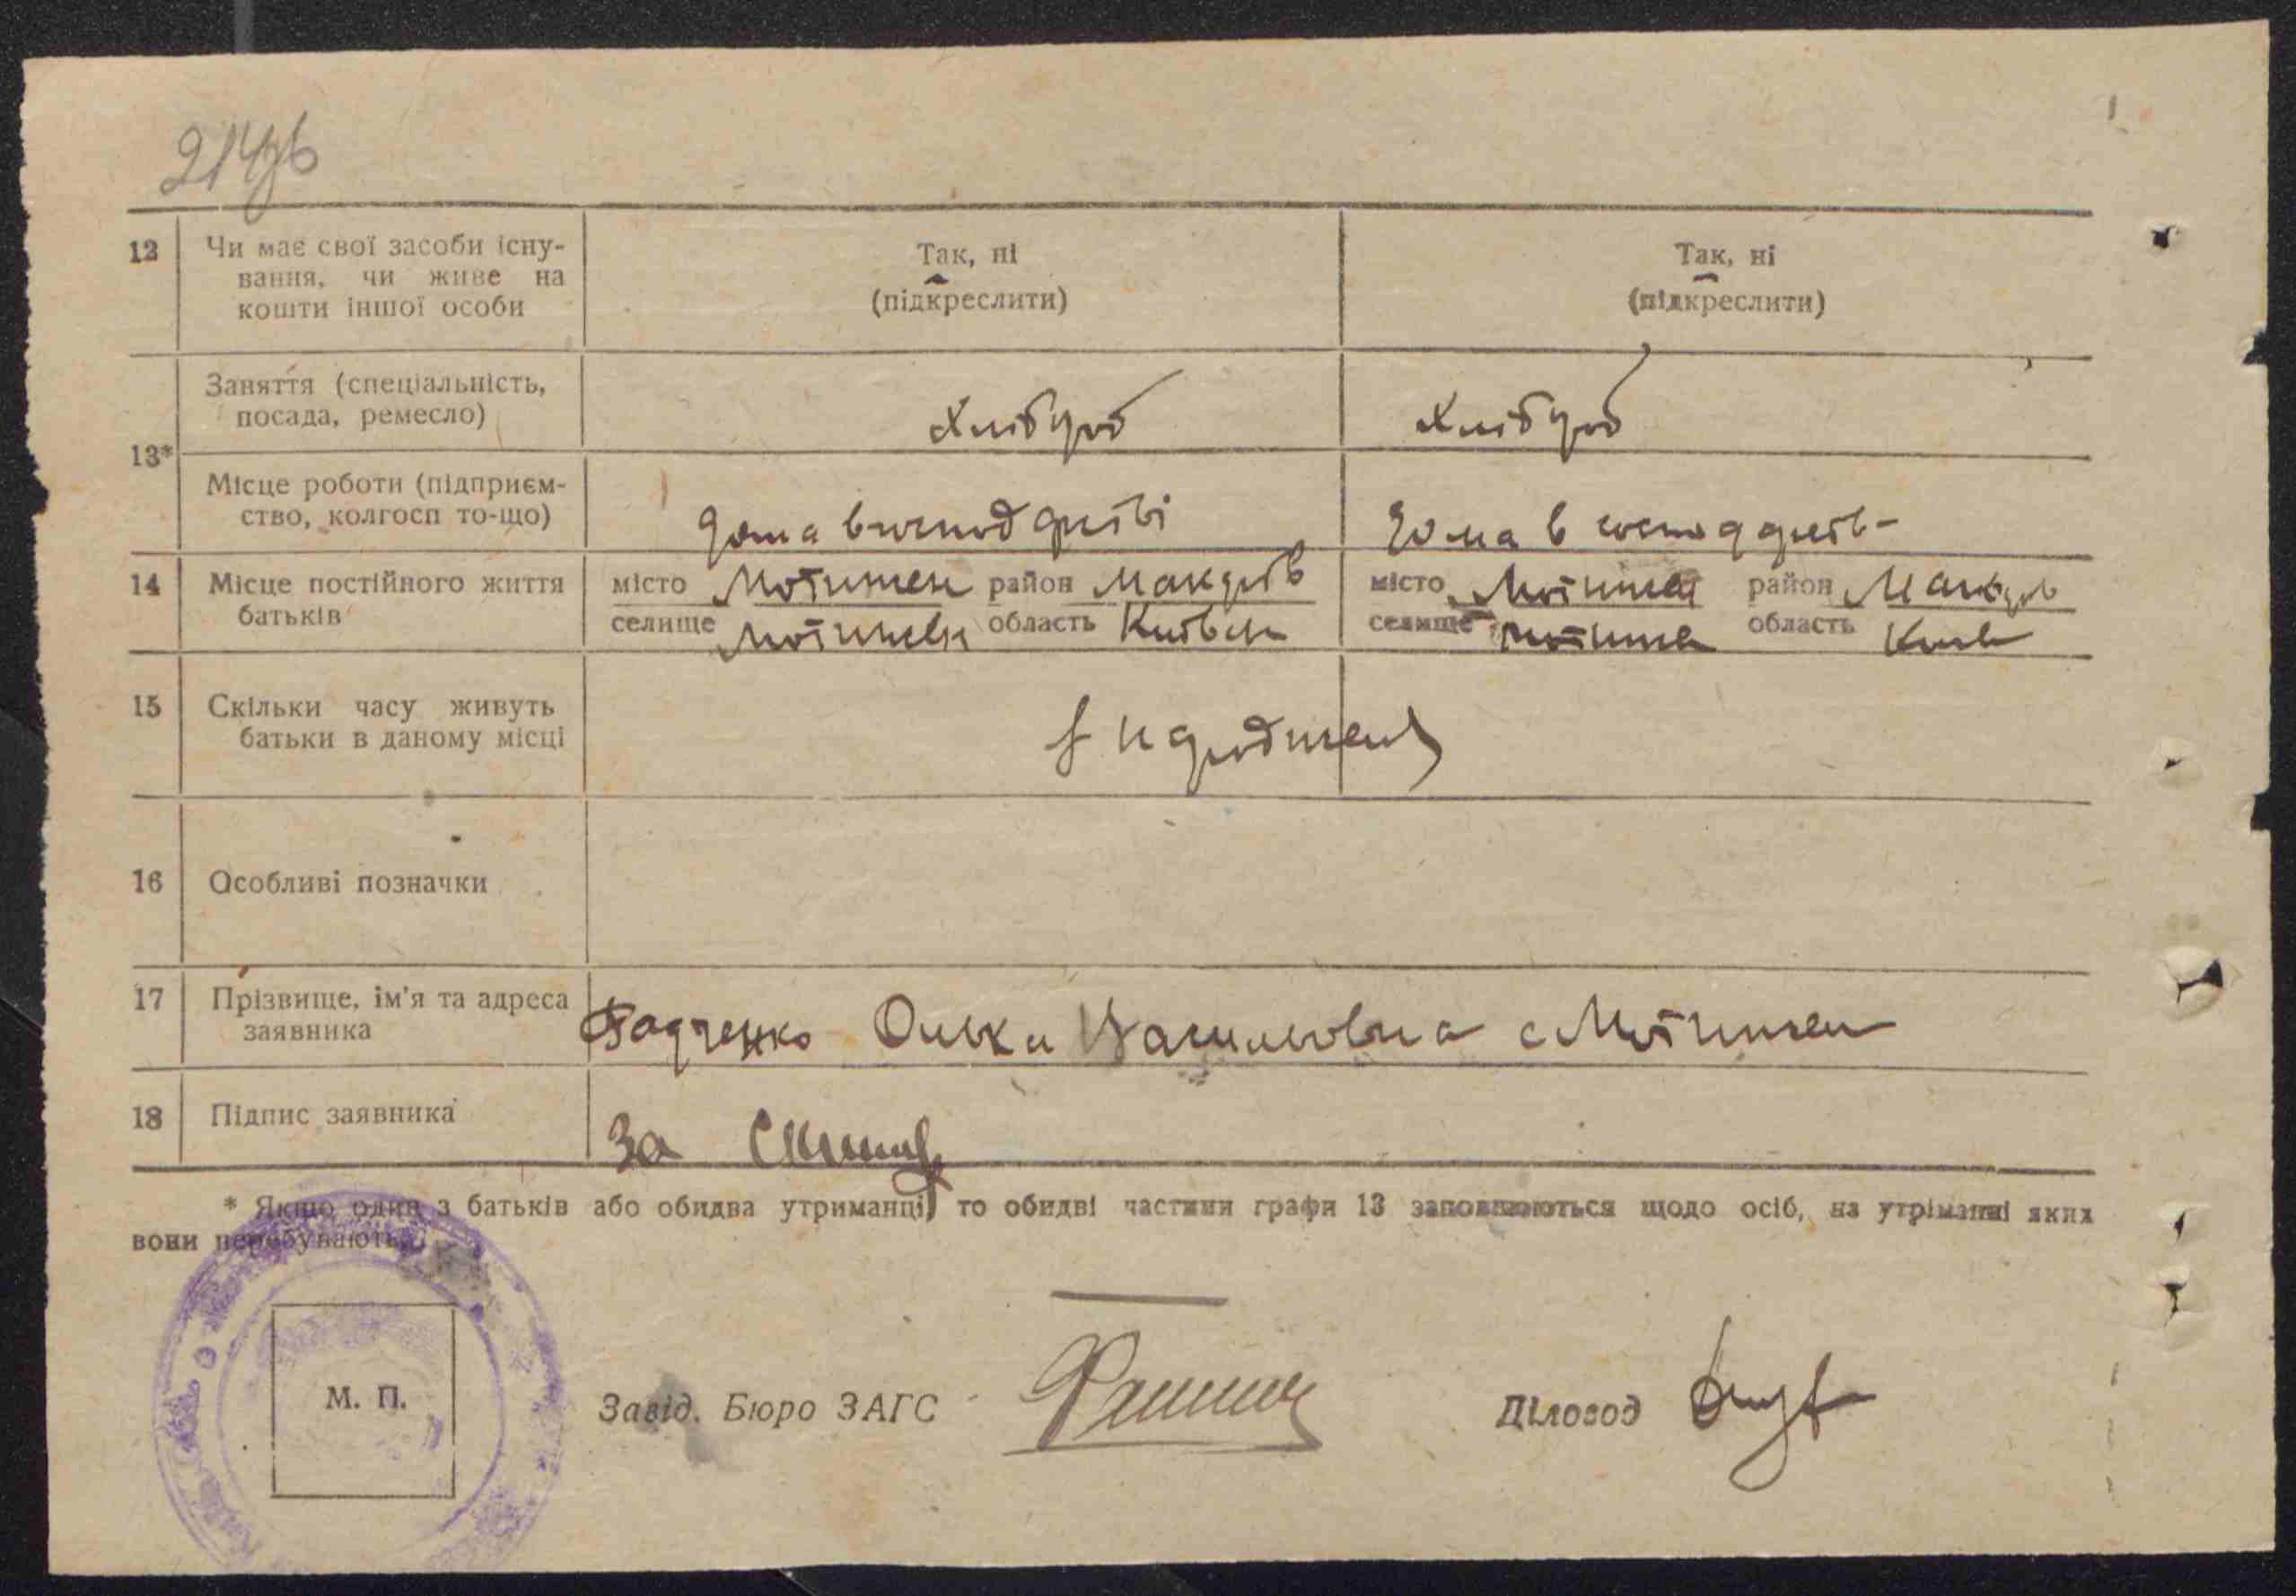 214зб
12 Чи має свої засоби існу- Так, ні Так, ні
вання, чи живе на (підкреслити) (підкреслити)
кошти іншої особи
Заняття (спеціальність, Хлібороб Хлібороб
посада, ремесло)
13*
Місце роботи (підприєм- дома в господарстві дома в господарств-
ство, колгосп то-що)
14 Місце постійного життя місто Мотижен район Макарів місто Мотижен район Макарів
батьків селище Мотижен область Київськ селище Мотижен область Київ
15 Скільки часу живуть з народження
батьки в даному місці
16 Особливі позначки
17 Прізвище, ім'я та адреса Радченко Олька Василовна с Мотижен
заявника
18 Підпис заявника За
* Якщо один з батьків або обидва утриманці, то обидві частини графи 13 заповнюються щодо осіб, на утріманні яких
вони перебувають.
М. П.
Завід. Бюро ЗАГС
Діловод